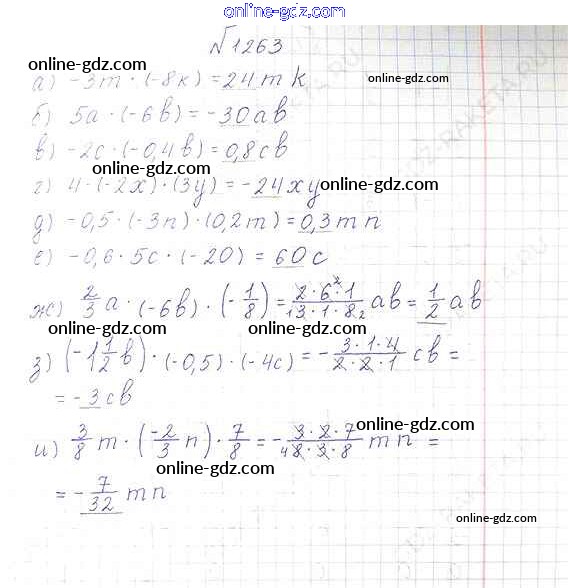 online-gdz.com
№1263
online-gdz.com
а) -3m · (-8к) = 24mk
online-gdz.com
б) 5a · (-6в) = -30ав
в) -2с · (-0,4в) = 0,8св
online-gdz.com
г) 4 · (-2x) · (3y) = -24xy
online-gdz.com
д) -0,5 · (-3n) · (0,2m) = 0,3mn
е) -0,6 · 5с · (-20) = 60с
online-gdz.com
ж) 2/3 a · (-6в) · (-1/8) = 2·6²·1/13·1·8₂ ав = 1/2 ав
online-gdz.com
online-gdz.com
з) (-1 1/2 в) · (-0,5) · (-4с) = - 3·1·4/2·2·1 св =
= -3св
online-gdz.com
и) 3/8 m · (-2/3 n) · 7/8 = - 3·2·7/₄8·3·8 mn =
online-gdz.com
= - 7/32 mn
online-gdz.com
GDZ-RAKETA.RU